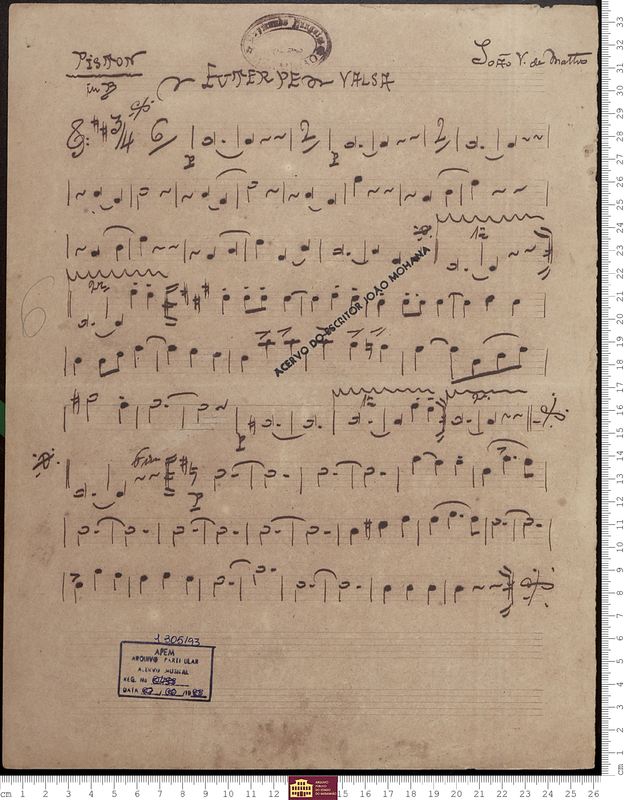 PISTON
in B
EUTERPE VALSA
João V. de Mattos
3/4 6 2 2
p p
1ª
2ª
6
ACERVO DO ESCRITOR JOÃO MOHANA
1ª 2ª
p
Fim
p
1305/93
APEM
ARQUIVO PARTICULAR
ACERVO MUSICAL
REG. No
DATA
cm 1 2 3 4 5 6 7 8 9 10 11 12 13 14 15 16 17 18 19 20 21 22 23 24 25 26
cm 1 2 3 4 5 6 7 8 9 10 11 12 13 14 15 16 17 18 19 20 21 22 23 24 25 26 27 28 29 30 31 32 33
ARQUIVO
PÚBLICO
DO ESTADO
DO MARANHÃO